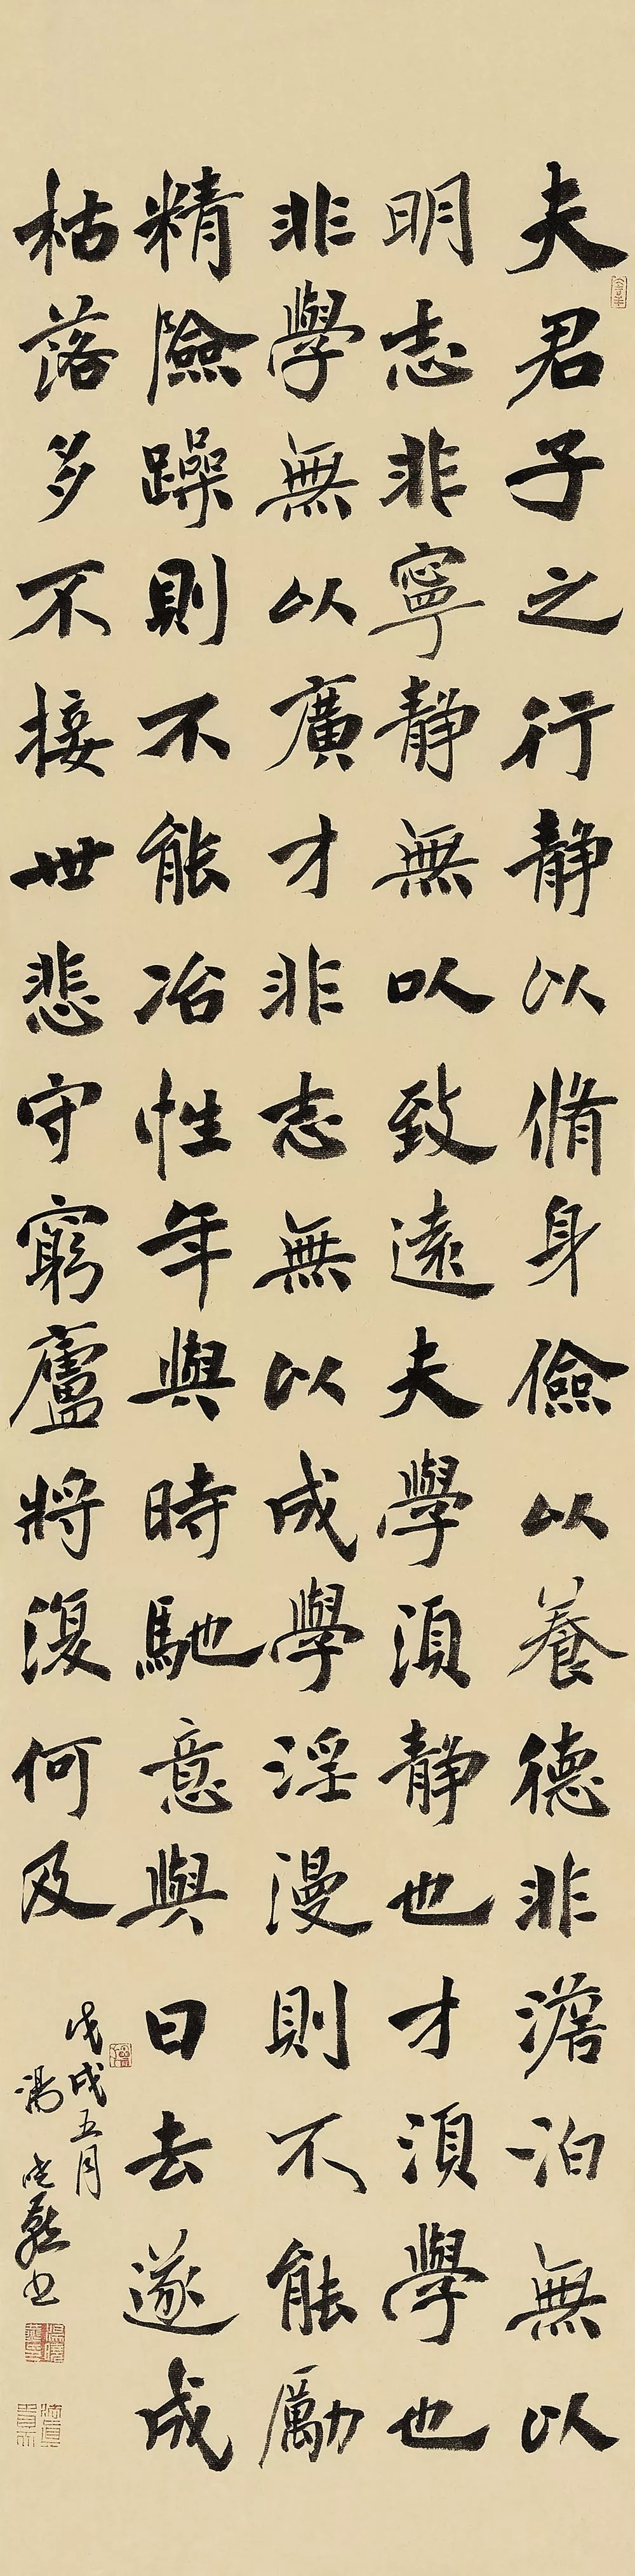 夫君子之行静以脩身儉以養德非澹泊無以
明志非寧静無以致遠夫學須静也才須學也
非學無以廣才非志無以成學淫漫則不能勵
精險躁則不能冶性年與時馳意與日去遂成
枯落多不接世悲守窮廬將復何及
戊戌五月
湯
書